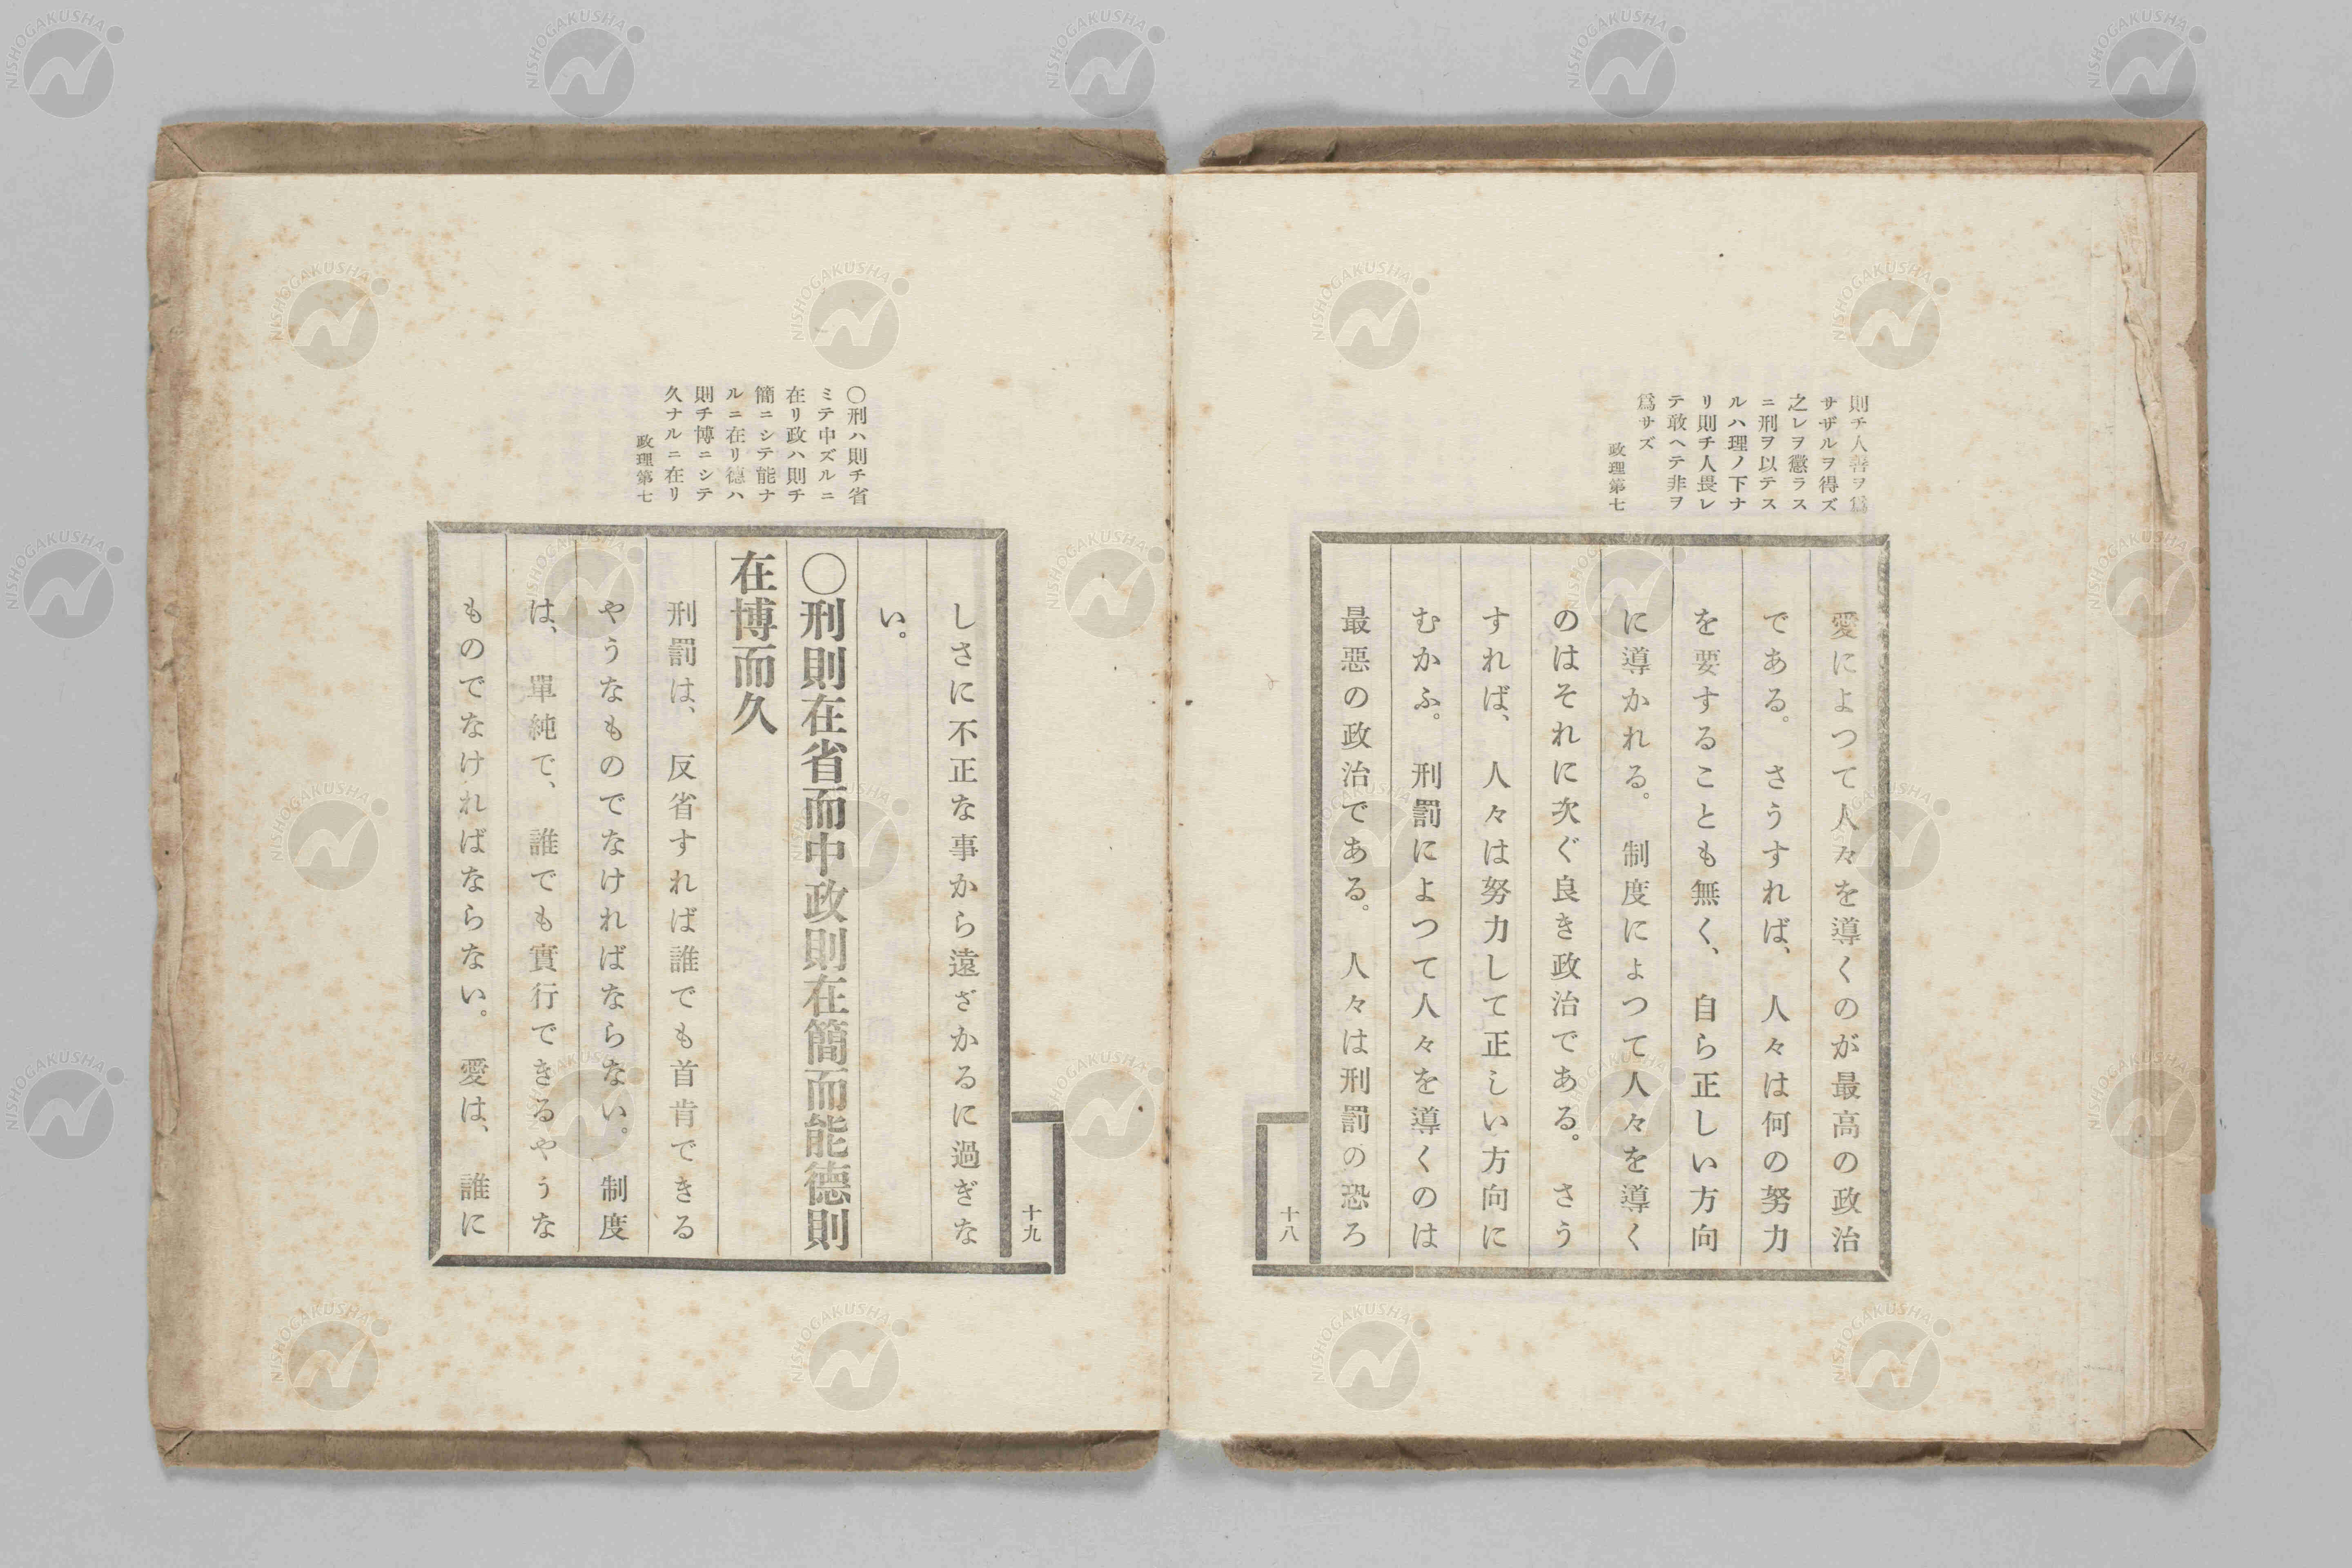 則チ人善ヲ爲
サザルヲ得ズ
之レヲ懲ラス
ニ刑ヲ以テス
ルハ理ノ下ナ
リ則チ人畏レ
テ敢ヘテ非ヲ
爲サズ
政理第七
愛によつて人々を導くのが最高の政治
である。さうすれば、人々は何の努力
を要することも無く、自ら正しい方向
に導かれる。制度によつて人々を導く
のはそれに次ぐ良き政治である。さう
すれば、人々は努力して正しい方向に
むかふ。刑罰によつて人々を導くのは
最惡の政治である。人々は刑罰の恐ろ
十八
〇刑ハ則チ省
ミテ中ズルニ
在リ政ハ則チ
簡ニシテ能ナ
ルニ在リ德ハ
則チ博ニシテ
久ナルニ在リ
政理第七
十九
しさに不正な事から遠ざかるに過ぎな
い。
〇刑則在省而中政則在簡而能德則
在博而久
刑罰は、反省すれば誰でも首肯できる
やうなものでなければならない。制度
は、單純で、誰でも實行できるやうな
ものでなければならない。愛は、誰に
NISHOGAKUSHA